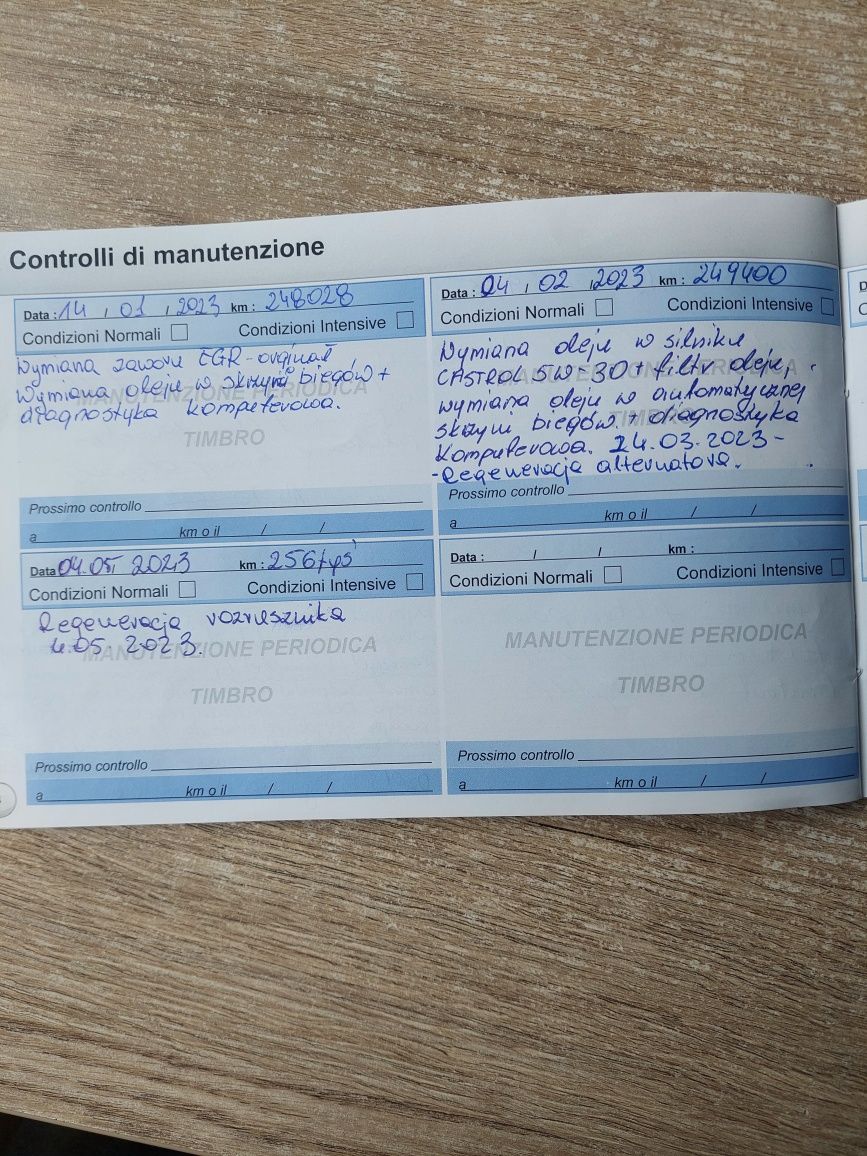 Controlli di manutenzione
Data : 14 , 01 , 2023 km : 248028
Condizioni Normali Condizioni Intensive
Wymiana zaworu EGR - orginał
Wymiana oleju w skrzyni biegów +
diagnostyka komputerowa.
MANUTENZIONE PERIODICA
TIMBRO
Prossimo controllo
a km o il / /
Data : 04 , 02 , 2023 km : 249400
Condizioni Normali Condizioni Intensive
Wymiana oleju w silniku
CASTROL 5W-30 + filtr oleju,
wymiana oleju w automatycznej
skrzyni biegów + diagnostyka
komputerowa. 24.03.2023 -
- Regeneracja alternatora.
MANUTENZIONE PERIODICA
TIMBRO
Prossimo controllo
a km o il / /
Data 04.05. 2023 km : 256 tyś
Condizioni Normali Condizioni Intensive
Regeneracja rozrusznika
4.05. 2023.
MANUTENZIONE PERIODICA
TIMBRO
Prossimo controllo
a km o il / /
Data : / / km :
Condizioni Normali Condizioni Intensive
MANUTENZIONE PERIODICA
TIMBRO
Prossimo controllo
a km o il / /